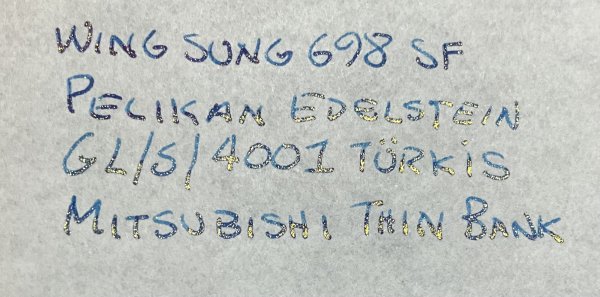 WING SUNG 698 SF
PELIKAN EDELSTEIN
GL/S/4001 TÜRKIS
MITSUBISHI THIN BANK